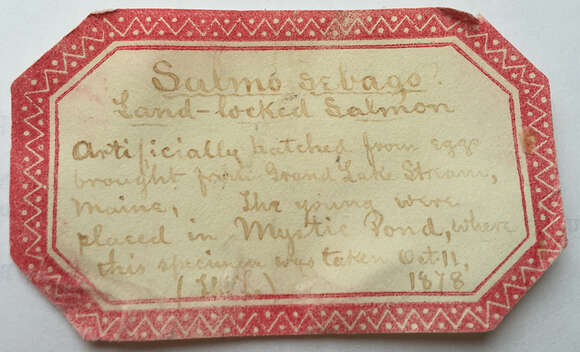 Salmo sebago.
Land-locked Salmon
Artificially hatched from eggs
brought from Grand Lake Stream,
Maine, The young were
placed in Mystic Pond, where
this specimen was taken Oct. 11,
1878